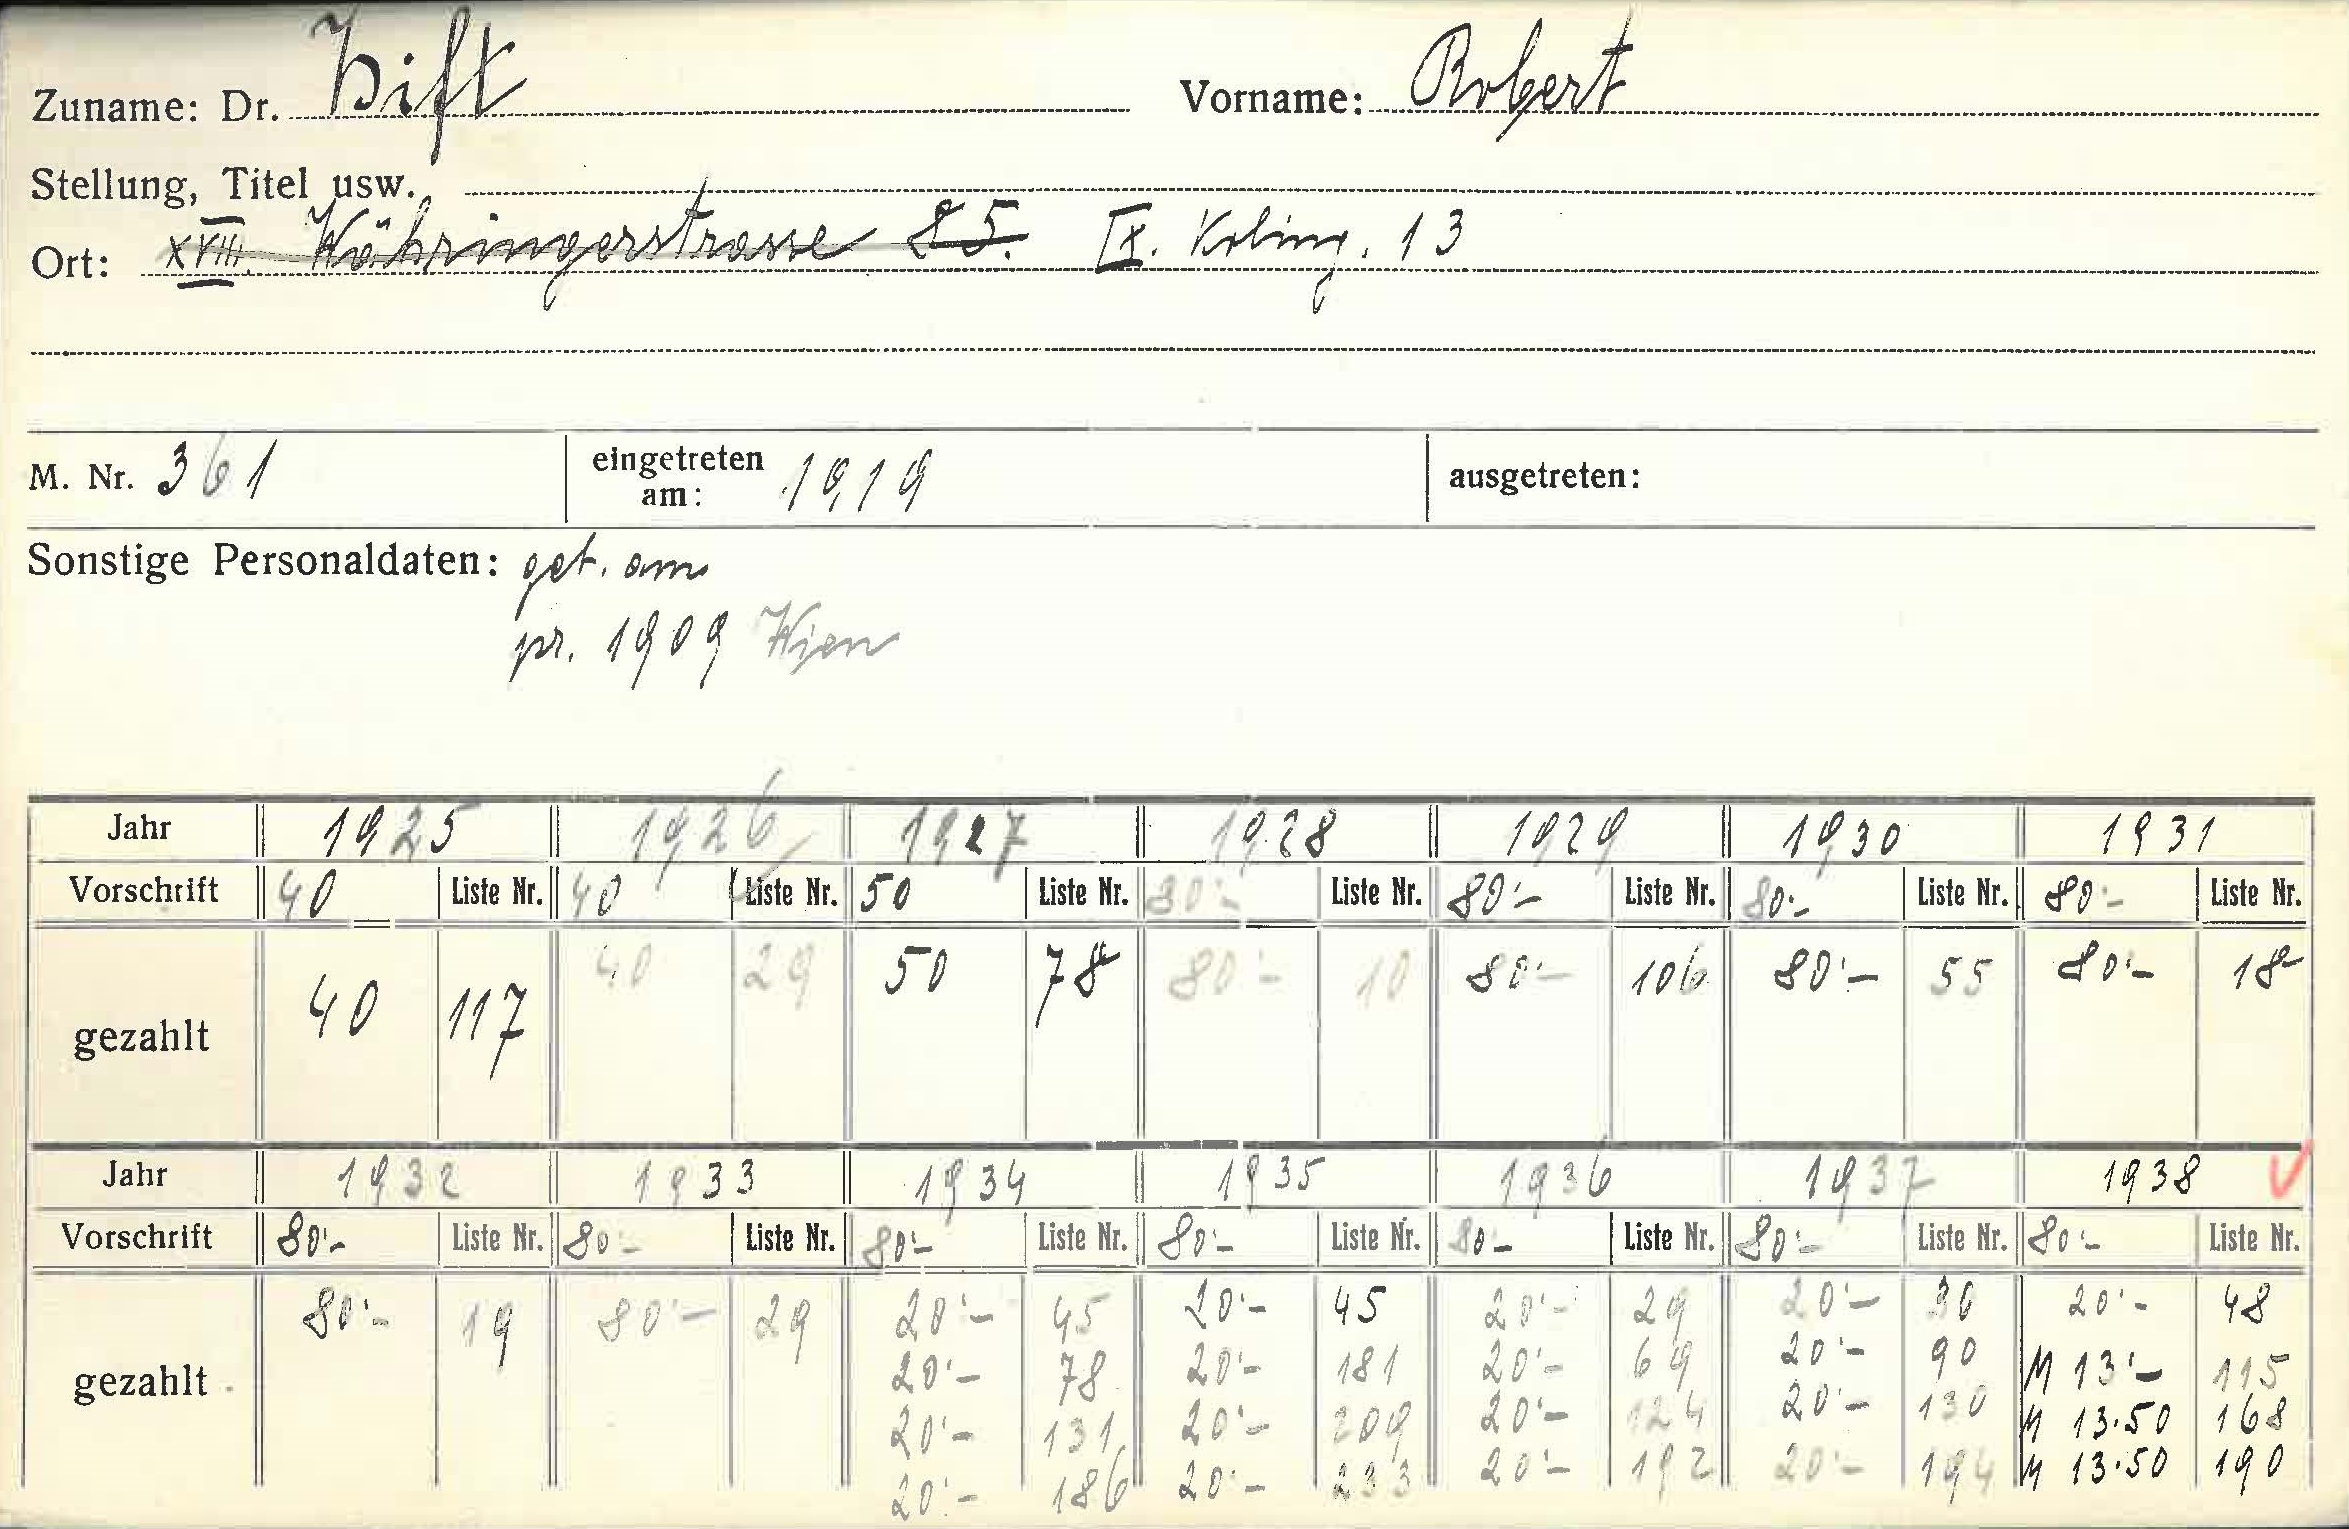 Zuname: Dr. Hift Vorname: Robert
Stellung, Titel usw.
Ort: XVIII. Währingerstrasse 85. IX. Koling. 13
M. Nr. 361 eingetreten am: 1919 ausgetreten:
Sonstige Personaldaten: geb. am
pr. 1909 Wien
Jahr 1925 1926 1927 1928 1929 1930 1931
Vorschrift 40 Liste Nr. 40 Liste Nr. 50 Liste Nr. 80'- Liste Nr. 80'- Liste Nr. 80'- Liste Nr. 80'- Liste Nr.
gezahlt 40 117 40 29 50 78 80'- 10 80'- 106 80'- 55 80'- 18
Jahr 1932 1933 1934 1935 1936 1937 1938
Vorschrift 80'- Liste Nr. 80'- Liste Nr. 80'- Liste Nr. 80'- Liste Nr. 80- Liste Nr. 80'- Liste Nr. 80'- Liste Nr.
gezahlt 80'- 19 80'- 29 20'- 45 20'- 45 20'- 29 20'- 30 20'- 48
20'- 78 20'- 181 20'- 69 20'- 90 M 13'- 115
20'- 131 20'- 209 20'- 124 20'- 130 M 13.50 168
20'- 186 20'- 233 20'- 192 20'- 194 M 13.50 190